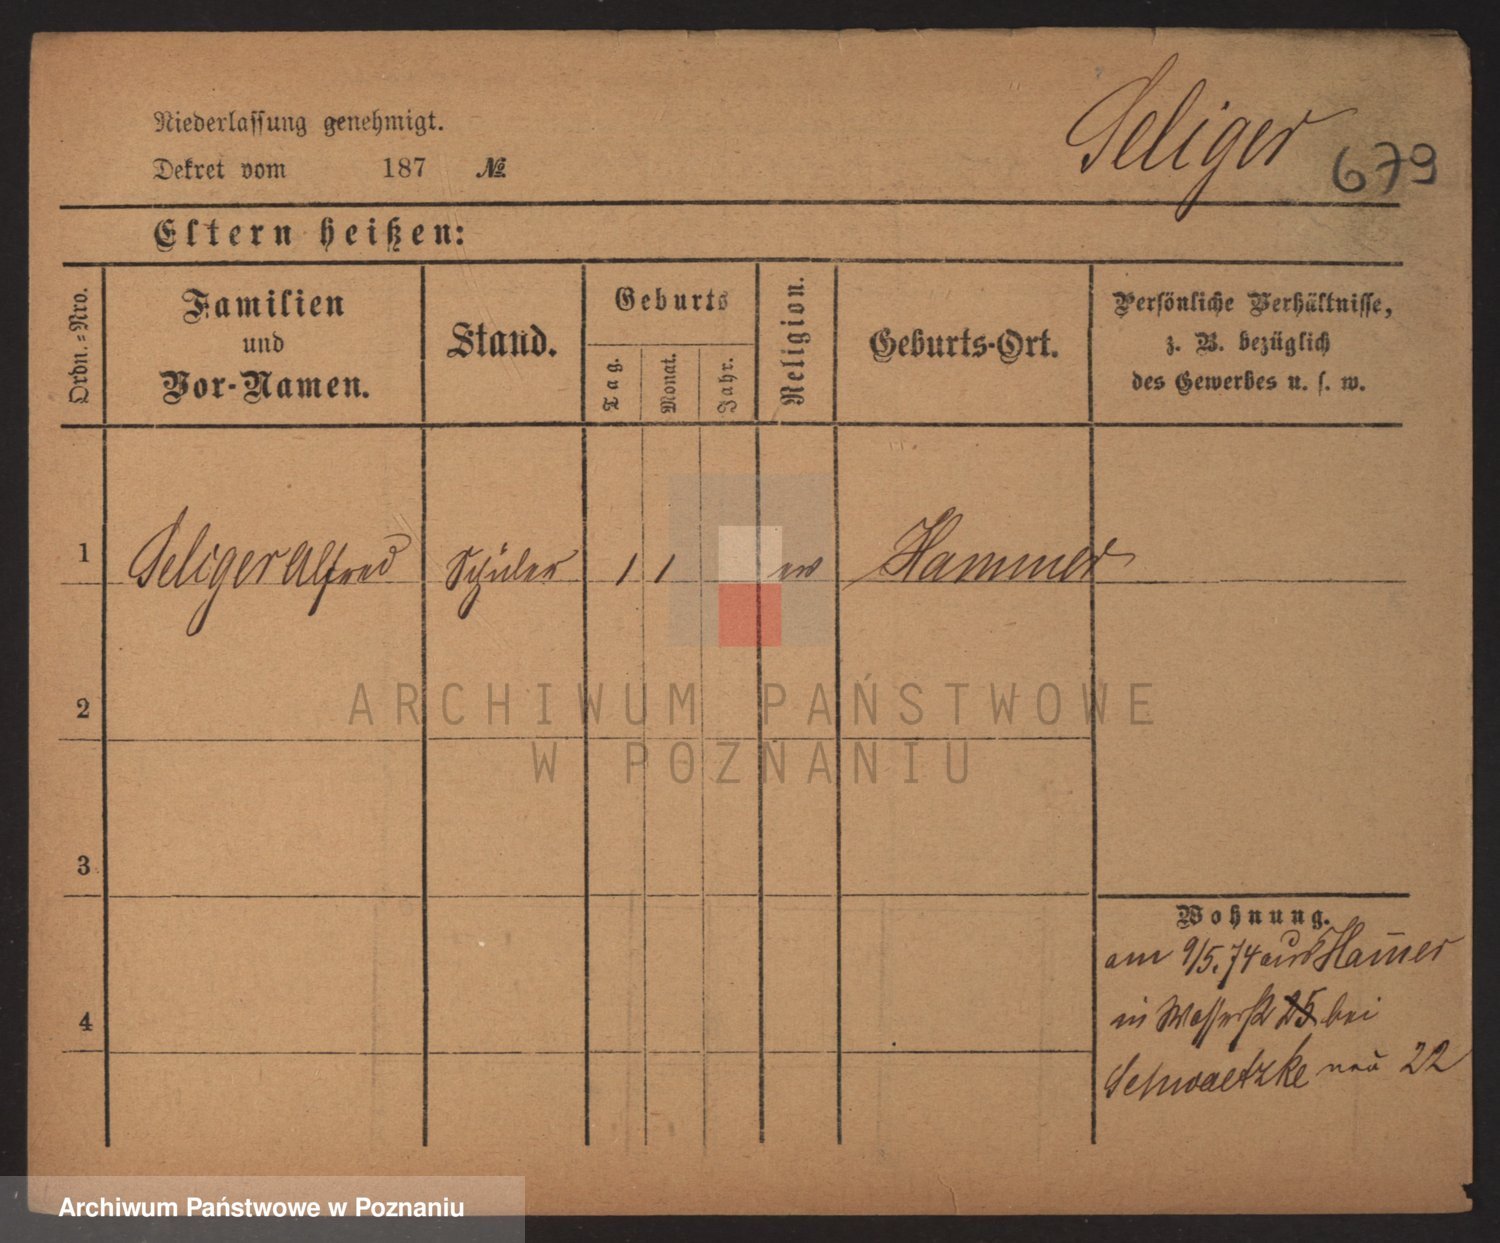 Niederlassung genehmigt.
Seliger 679
Dekret vom 187 №
Eltern heißen:
Ordn.-Nro.
Familien
und
Vor-Namen.
Stand.
Geburts
Tag.
Monat.
Jahr.
Religion.
Geburts-Ort.
Persönliche Verhältnisse,
z. B. bezüglich
des Gewerbes u. s. w.
1 Seliger Alfred Schüler 1 1 ev Hammer
2
ARCHIWUM PAŃSTWOWE
W POZNANIU
3
Wohnung.
am 9/5.74 aus Ham̄er
4
in Wasserst 25 bei
Schwaetzke neu 22
Archiwum Państwowe w Poznaniu